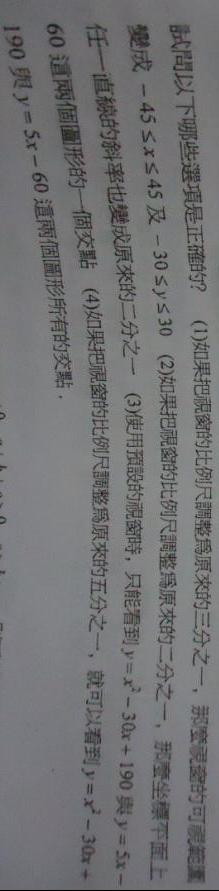 試問以下哪些選項是正確的? (1)如果把視窗的比例尺調整為原來的三分之一，那麼視窗的可視範圍
變成 −45 ≤ x ≤ 45 及 −30 ≤ y ≤ 30 (2)如果把視窗的比例尺調整為原來的二分之一，那麼坐標平面上
任一直線的斜率也變成原來的二分之一 (3)使用預設的視窗時，只能看到 y = x² − 30x + 190 與 y = 5x −
60 這兩個圖形的一個交點 (4)如果把視窗的比例尺調整為原來的五分之一，就可以看到 y = x² − 30x +
190 與 y = 5x − 60 這兩個圖形所有的交點．